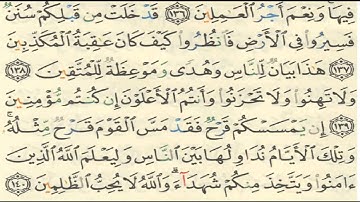 فِيهَا وَنِعْمَ أَجْرُ الْعَٰمِلِينَ ١٣٦ قَدْ خَلَتْ مِن قَبْلِكُمْ سُنَنٌ
فَسِيرُوا۟ فِى الْأَرْضِ فَانظُرُوا۟ كَيْفَ كَانَ عَٰقِبَةُ الْمُكَذِّبِينَ
١٣٧ هَٰذَا بَيَانٌ لِّلنَّاسِ وَهُدًى وَمَوْعِظَةٌ لِّلْمُتَّقِينَ ١٣٨
وَلَا تَهِنُوا۟ وَلَا تَحْزَنُوا۟ وَأَنتُمُ الْأَعْلَوْنَ إِن كُنتُم مُّؤْمِنِينَ
١٣٩ إِن يَمْسَسْكُمْ قَرْحٌ فَقَدْ مَسَّ الْقَوْمَ قَرْحٌ مِّثْلُهُۥ ۚ
وَتِلْكَ الْأَيَّامُ نُدَاوِلُهَا بَيْنَ النَّاسِ وَلِيَعْلَمَ اللَّهُ الَّذِينَ
ءَامَنُوا۟ وَيَتَّخِذَ مِنكُمْ شُهَدَآءَ ۗ وَاللَّهُ لَا يُحِبُّ الظَّٰلِمِينَ ١٤٠